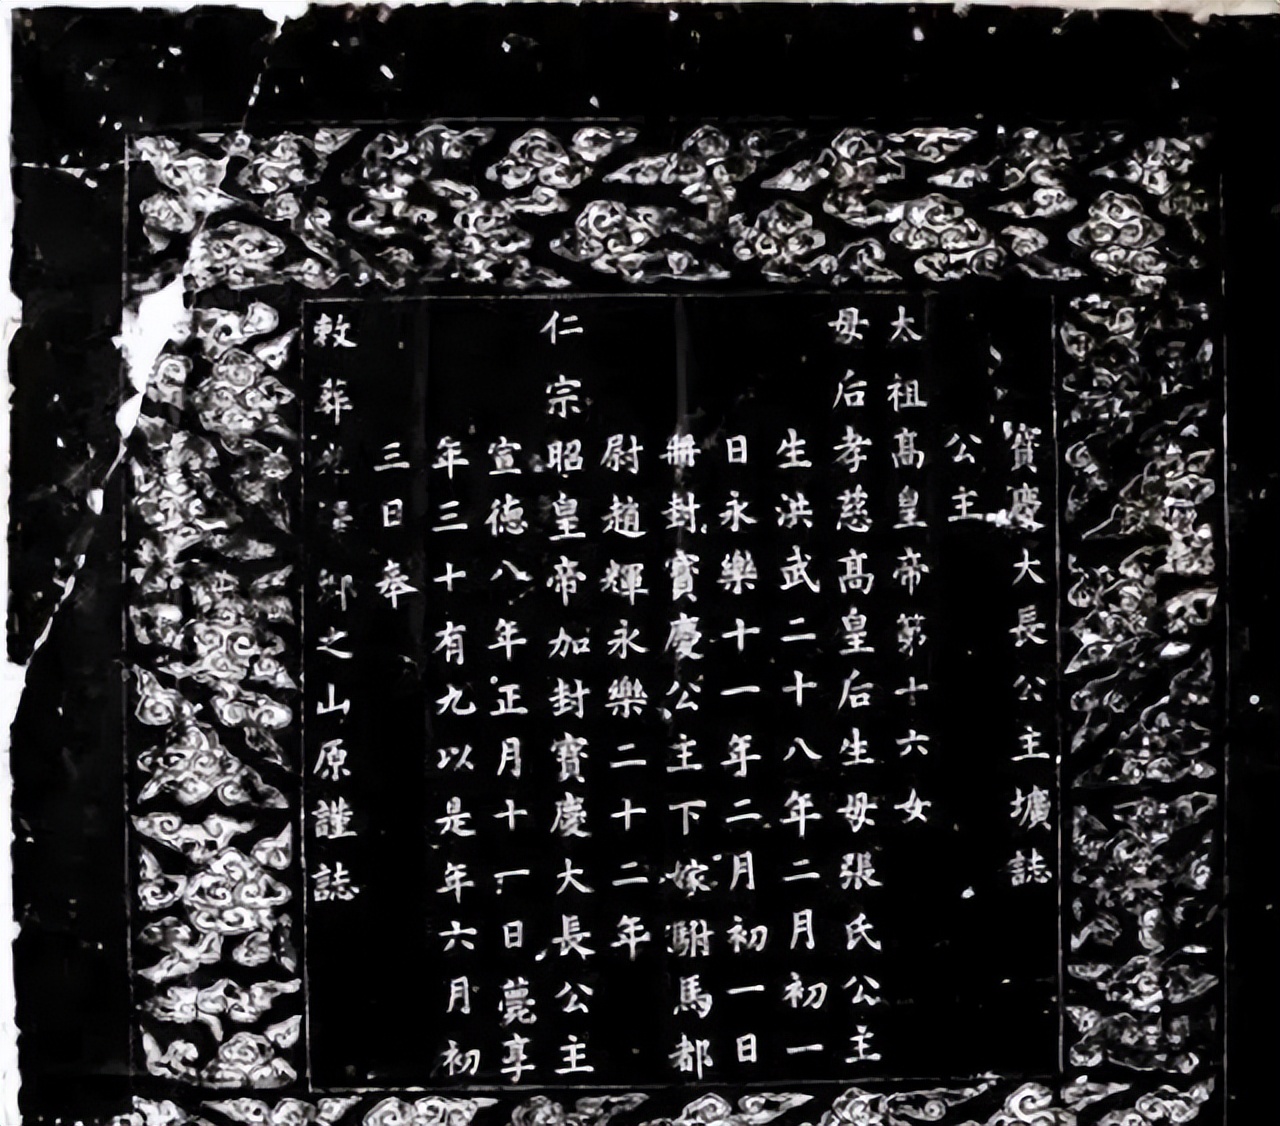 寳慶大長公主壙誌
公主
太祖高皇帝第十六女
母后孝慈高皇后生母張氏公主
生洪武二十八年二月初一
日永樂十一年二月初一日
冊封寳慶公主下嫁駙馬都
尉趙輝永樂二十二年
仁宗昭皇帝加封寳慶大長公主
宣德八年正月十一日薨享
年三十有九以是年六月初
三日奉
敕葬之山原謹誌